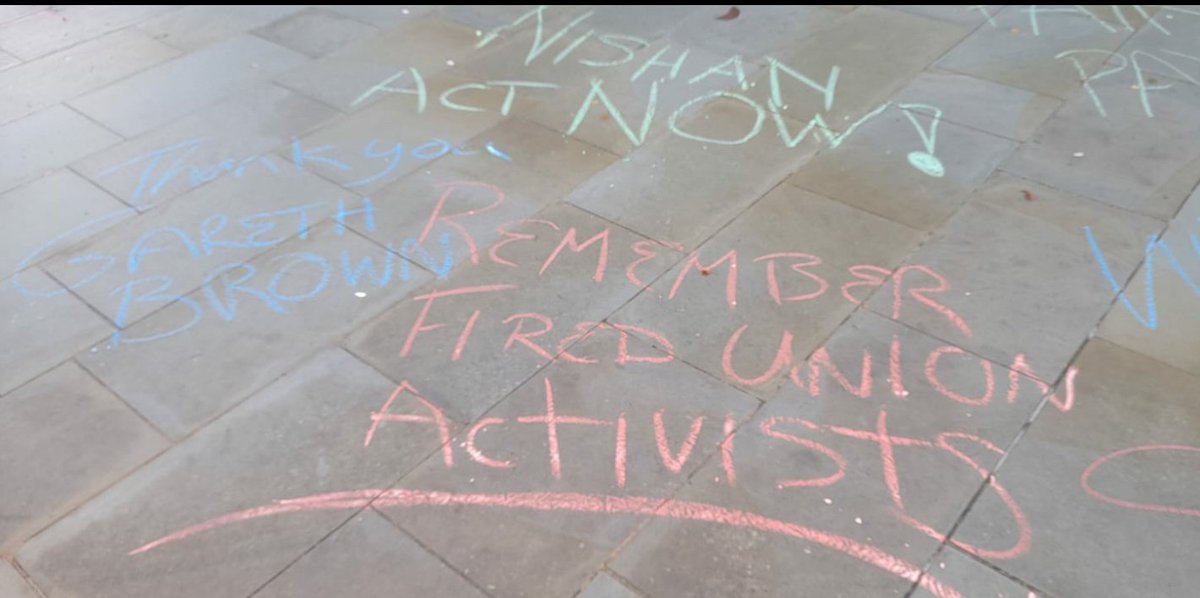 NISHAN
ACT NOW!
Thank you
GARETH
BROWN
REMEMBER
FIRED UNION
ACTIVISTS